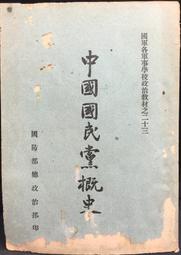 國軍各軍事學校政治教材之二十三
中國國民黨概史
國防部總政治部印